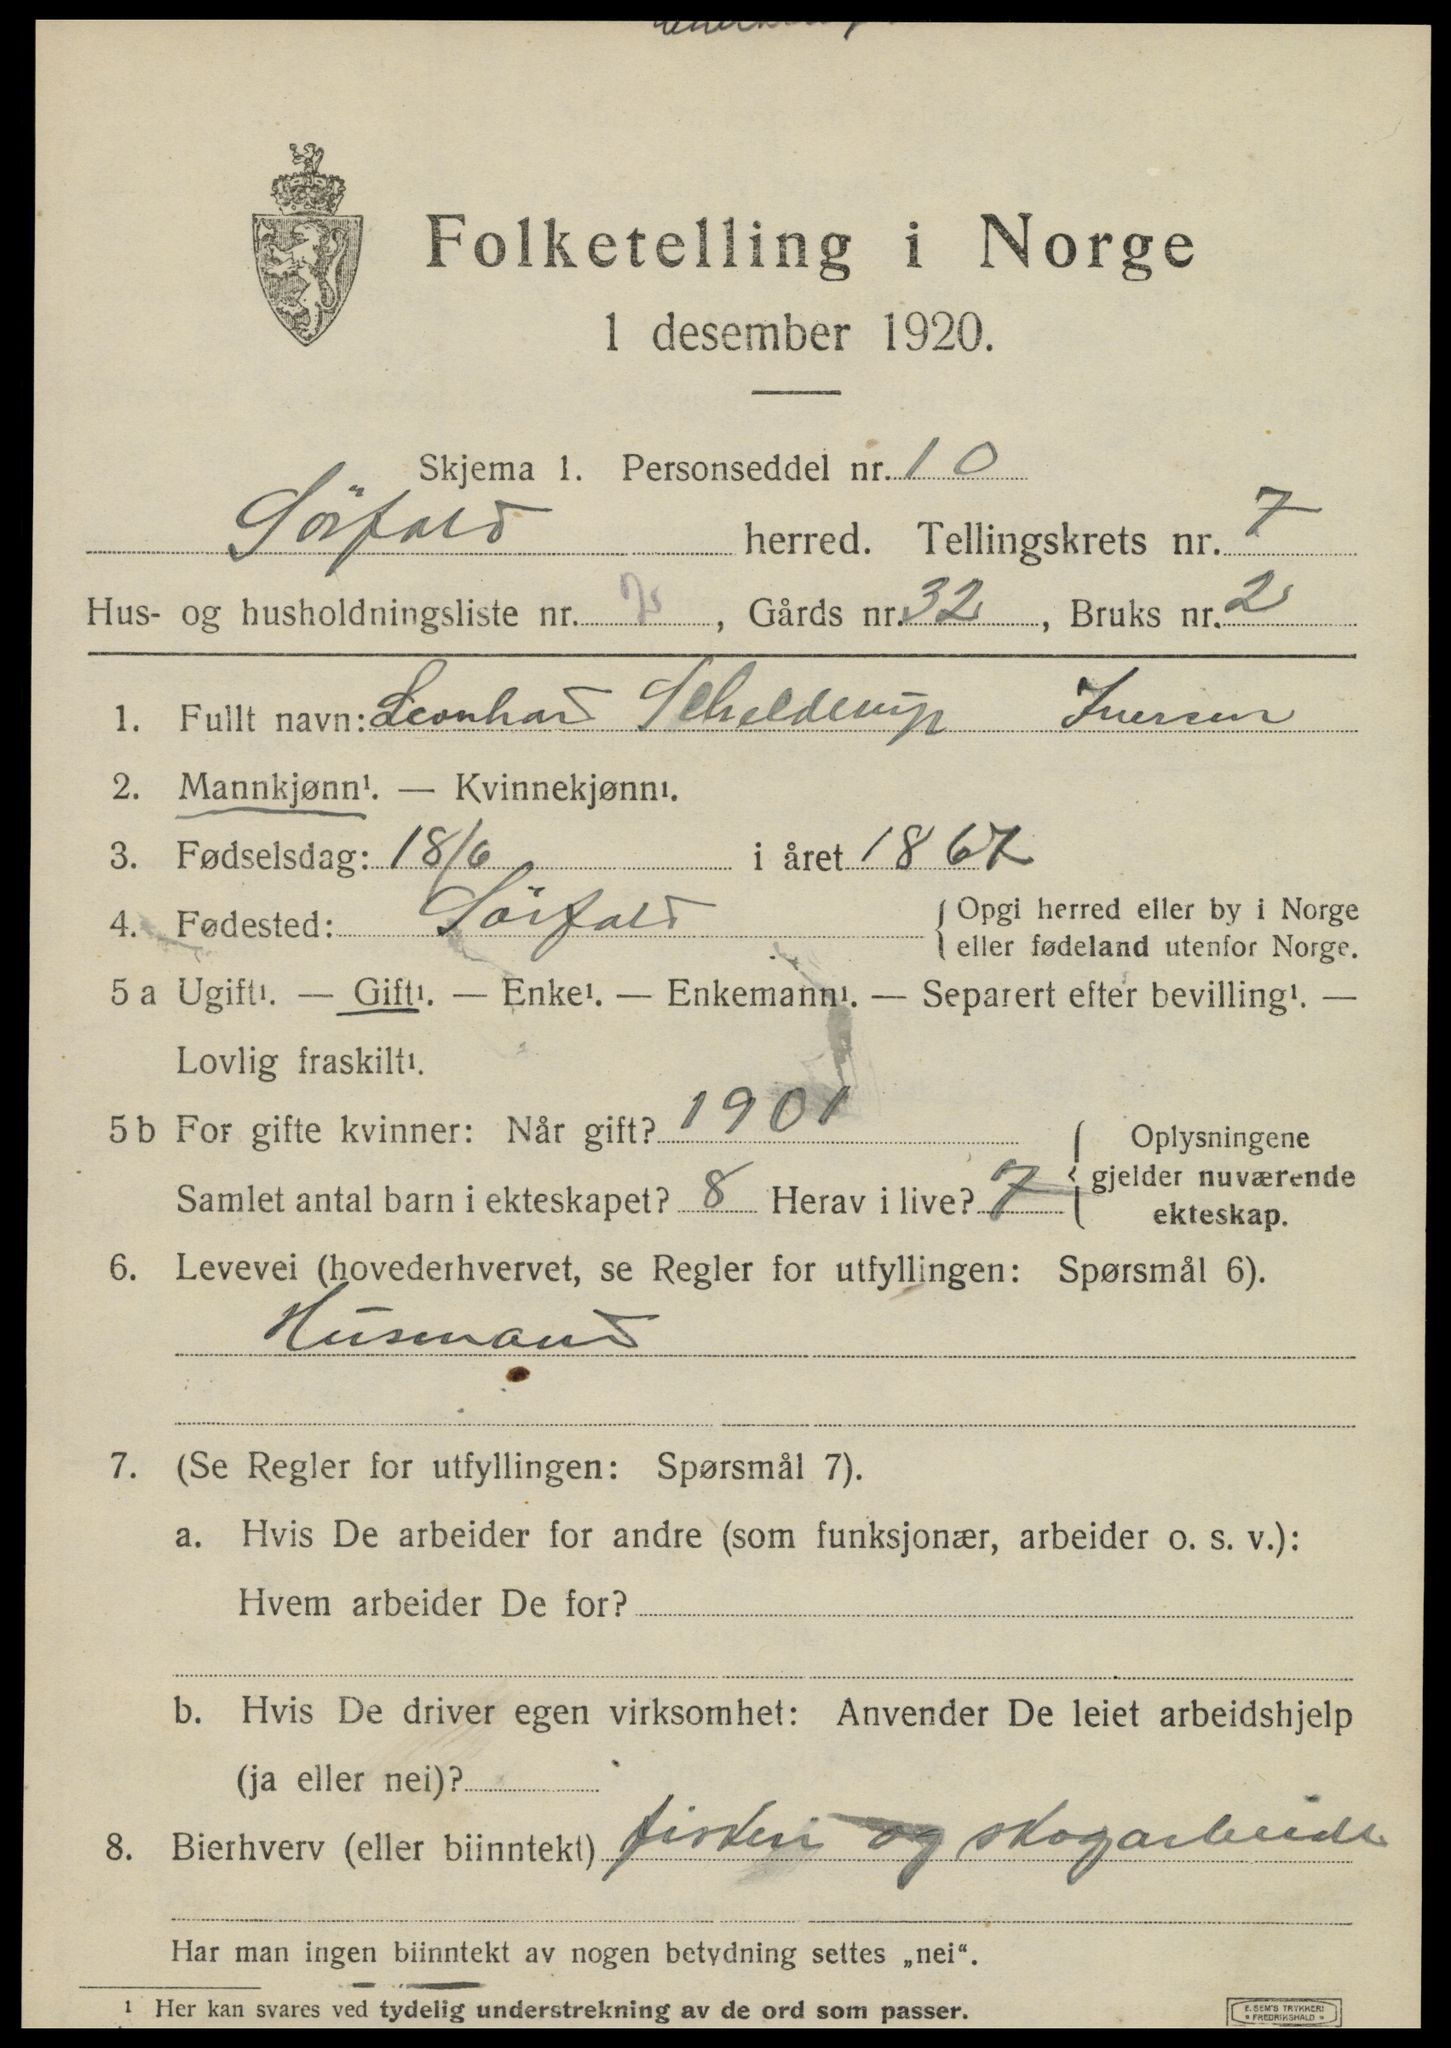 Folketelling i Norge
1 desember 1920.
Skjema 1. Personseddel nr. 10
Sörfold herred. Tellingskrets nr. 7
Hus- og husholdningsliste nr. , Gårds nr. 32, Bruks nr. 2
1. Fullt navn: Leonhard Schelderup Iversen
2. Mannkjønn¹. — Kvinnekjønn¹.
3. Fødselsdag: 18/6 i året 1867
4. Fødested: Sörfold { Opgi herred eller by i Norge
eller fødeland utenfor Norge.
5 a Ugift¹. — Gift¹. — Enke¹. — Enkemann¹. — Separert efter bevilling¹. —
Lovlig fraskilt¹.
5 b For gifte kvinner: Når gift? 1901
Samlet antal barn i ekteskapet? 8 Herav i live? 7
{ Oplysningene
gjelder nuværende
ekteskap.
6. Levevei (hovederhvervet, se Regler for utfyllingen: Spørsmål 6).
Husmand
7. (Se Regler for utfyllingen: Spørsmål 7).
a. Hvis De arbeider for andre (som funksjonær, arbeider o. s. v.):
Hvem arbeider De for?
b. Hvis De driver egen virksomhet: Anvender De leiet arbeidshjelp
(ja eller nei)?
8. Bierhverv (eller biinntekt) fiskeri og skogarbeide
Har man ingen biinntekt av nogen betydning settes „nei“.
¹ Her kan svares ved tydelig understrekning av de ord som passer.
E. SEM'S TRYKKERI
* FREDRIKSHALD *